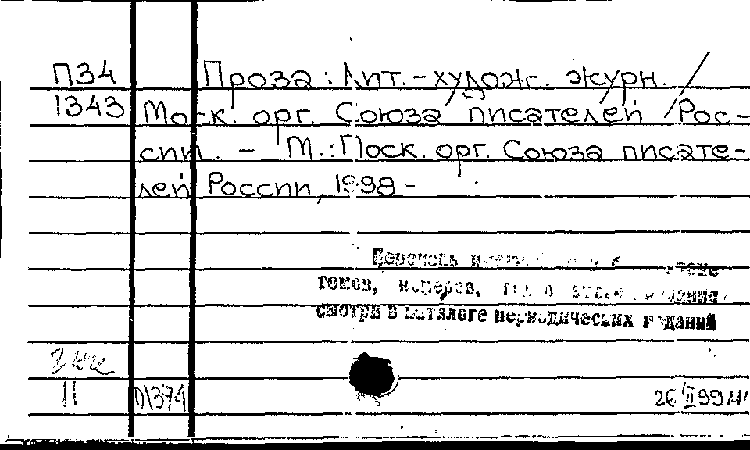 П34 Проза: Лит.-худож. журн. /
1343 Моск. орг. Союза писателей Рос-
сии. - М.: Моск. орг. Союза писате-
лей России, 1998-
Перечень
томов, номеров,
смотри в каталоге периодических изданий
11 26 II 99